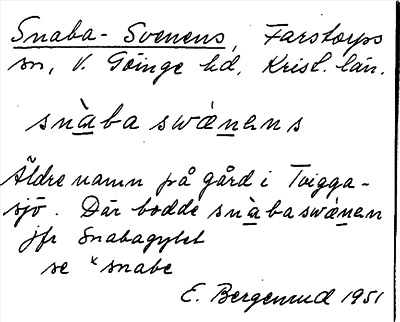 Snaba-Svenens, Farstorps
sn, V. Göinge hd, Krist. län.
snàba swánens
Äldre namn på gård i Tvigga-
sjö. Där bodde snàbaswánen
jfr Snabagylet
se *snabe
E. Bergenrud 1951